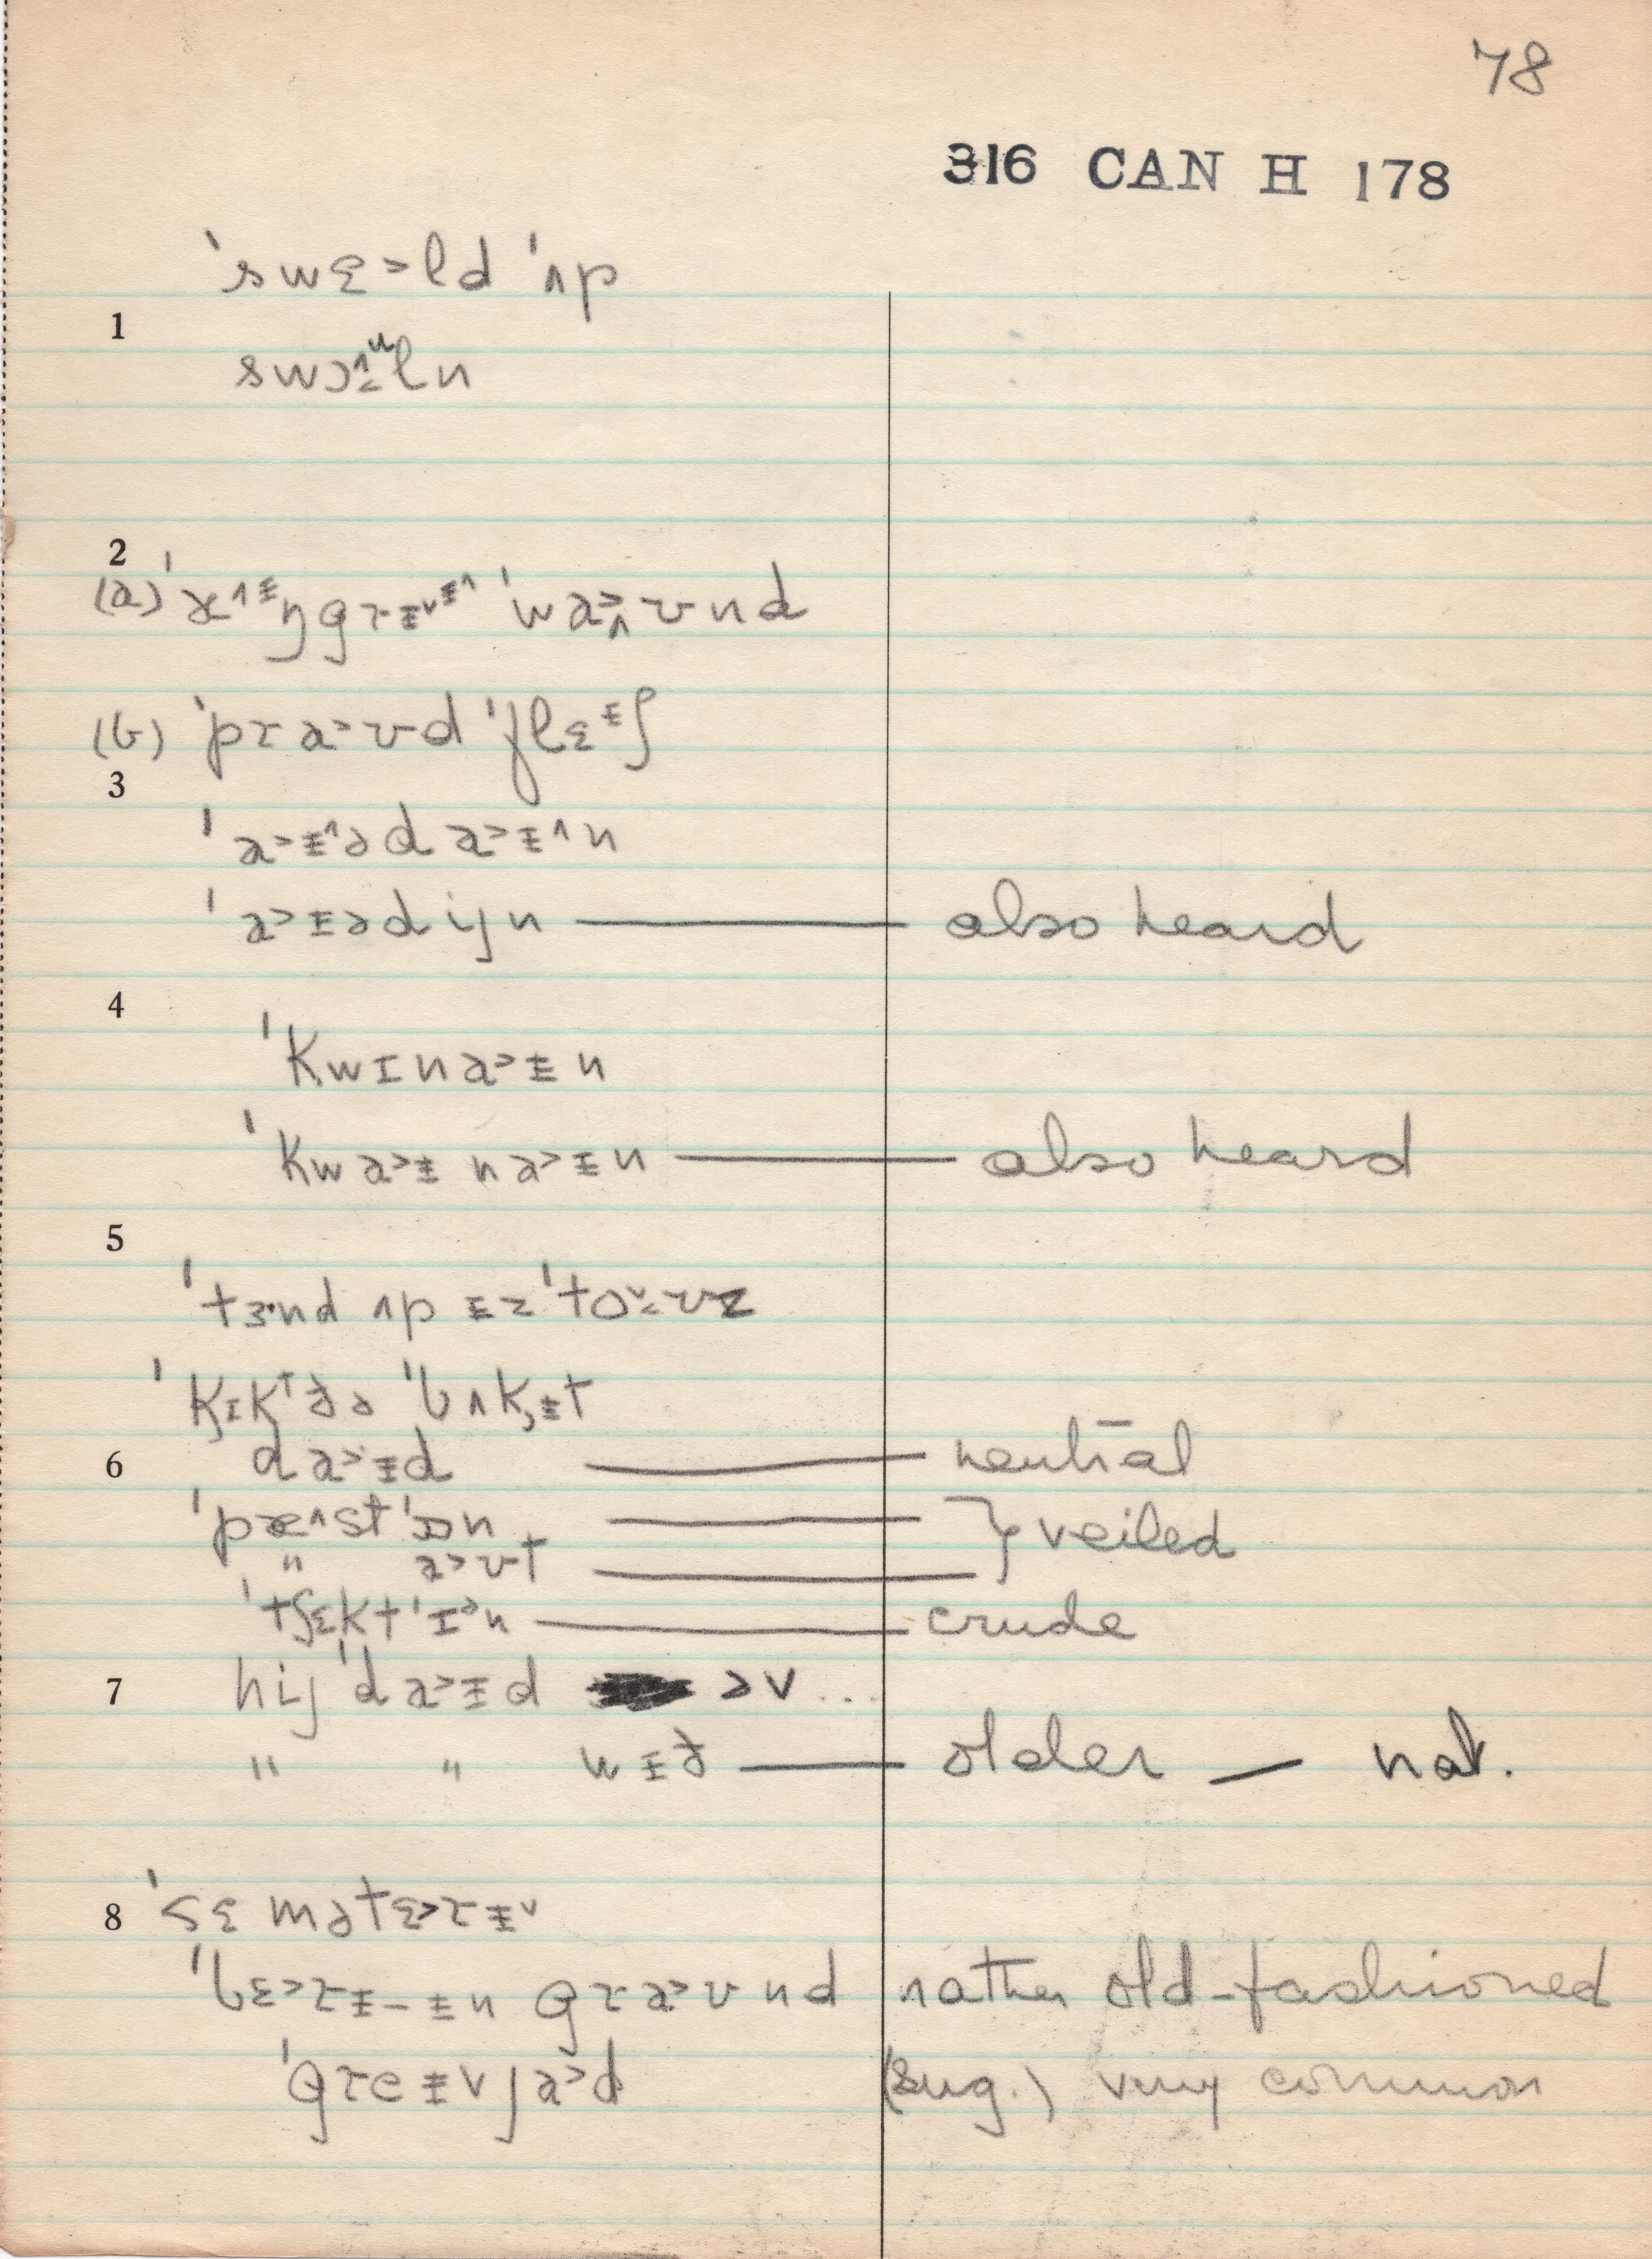 78
316 CAN H 178
ˈswɛ>ld ˈʌp
1
swɔ˄ᵘln
2
(a) ˈæ˄ᵻŋgrᵻ˅ᵻ˄ ˈwa>˄ʊnd
(b) ˈpra>ʊd ˈflɛᵻʃ
3
ˈa>ᵻ˄əda>ᵻ˄n
ˈa>ᵻədijn — also heard
4
ˈkwɪna>ᵻn
ˈkwa>ᵻna>ᵻn — also heard
5
ˈtɜ·nd ʌp ᵻz ˈto˅ʊz
ˈkɪkt ðə ˈbʌkᵻt
6 da>ᵻd — neutral
ˈpæ˄st ˈɒn — } veiled
" a>ʊt —
ˈtʃɛkt ˈɪᵊn — crude
7 hij ˈda>ᵻd əv ...
" " wᵻð — older — nat.
8 ˈsɛmətɛ>rᵻ˅
ˈbɛ>rᵻ-ᵻn gra>ʊnd rather old-fashioned
ˈgreᵻvja>d (sug.) very common